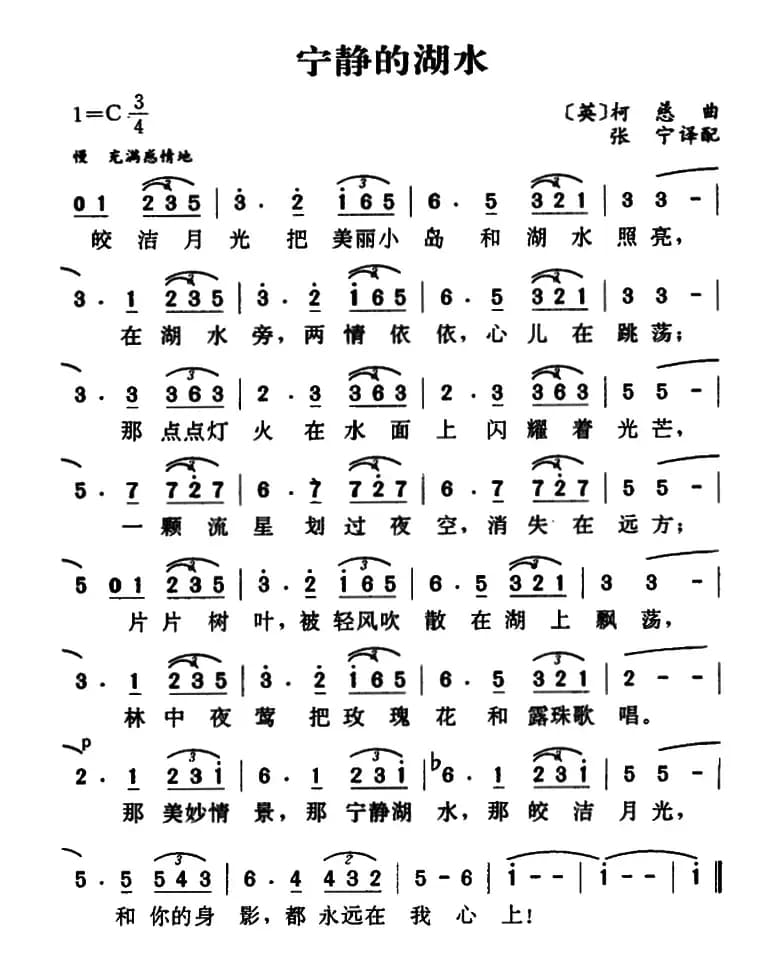 宁静的湖水
1=C 3/4
〔英〕柯 慈 曲
张 宁译配
慢 充满感情地
0 1 2 3 5 | 3 · 2 1 6 5 | 6 · 5 3 2 1 | 3 3 - |
皎 洁 月 光 把 美丽小 岛 和 湖 水 照 亮，
3 · 1 2 3 5 | 3 · 2 1 6 5 | 6 · 5 3 2 1 | 3 3 - |
在 湖 水 旁，两 情 依 依，心 儿 在 跳 荡；
3 · 3 3 6 3 | 2 · 3 3 6 3 | 2 · 3 3 6 3 | 5 5 - |
那 点点灯 火 在 水 面 上 闪 耀 着 光 芒，
5 · 7 7 2 7 | 6 · 7 7 2 7 | 6 · 7 7 2 7 | 5 5 - |
一 颗 流 星 划 过 夜 空，消 失 在 远 方；
5 0 1 2 3 5 | 3 · 2 1 6 5 | 6 · 5 3 2 1 | 3 3 - |
片 片 树 叶，被 轻风吹 散 在 湖 上 飘 荡，
3 · 1 2 3 5 | 3 · 2 1 6 5 | 6 · 5 3 2 1 | 2 - - |
林 中 夜 莺 把 玫 瑰 花 和 露珠歌 唱。
p
2 · 1 2 3 1 | 6 · 1 2 3 1 | ♭6 · 1 2 3 1 | 5 5 - |
那 美妙情 景，那 宁静湖 水，那 皎 洁 月 光，
5 · 5 5 4 3 | 6 · 4 4 3 2 | 5 - 6 | 1 - - | 1 - - | 1 ‖
和 你的身 影，都 永远在 我 心 上！